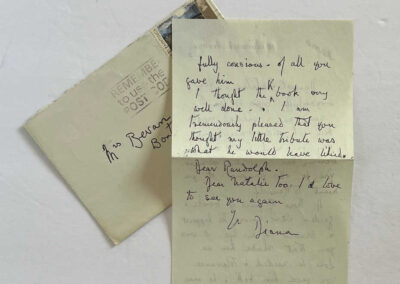 REMEMBE
to us the
POST-O
Mrs Bevan
Box
fully conscious - of all you
gave him
I thought the book very
well done - I am
tremendously pleased that you
thought my little tribute was
what he would have liked.
Dear Randolph.
Dear Natalie Too. I'd love
to see you again
Yr Diana